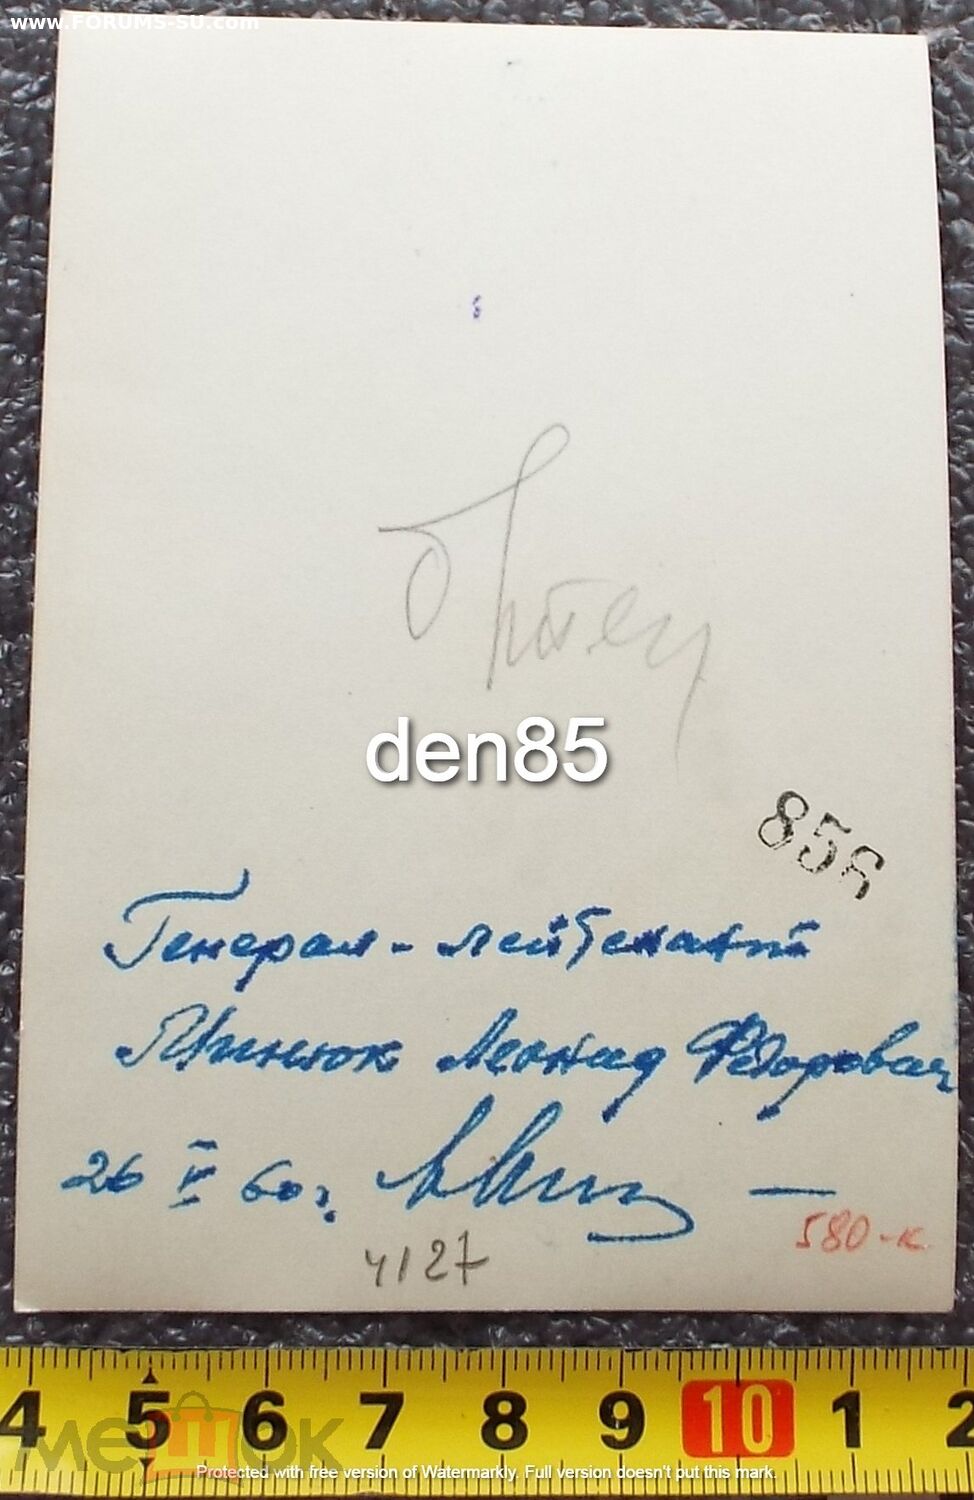 www.FORUMS-SU.com
den85
856
Генерал-лейтенант
Минюк Леонид Фёдорович
26 V 60 г.
580-к
4127
4 5 6 7 8 9 10 1 2
мешок
Protected with free version of Watermarkly. Full version doesn't put this mark.